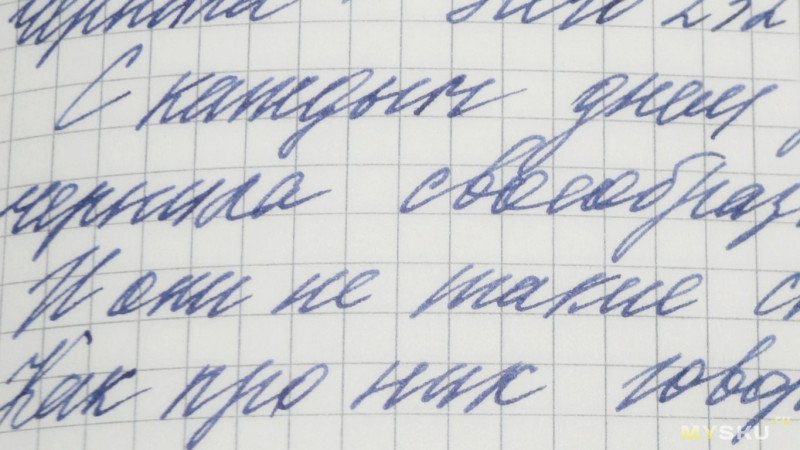 чернила
С каждым днем у
чернила своеобраз
И они не такие с
Как про них говор
MYSKU.ru